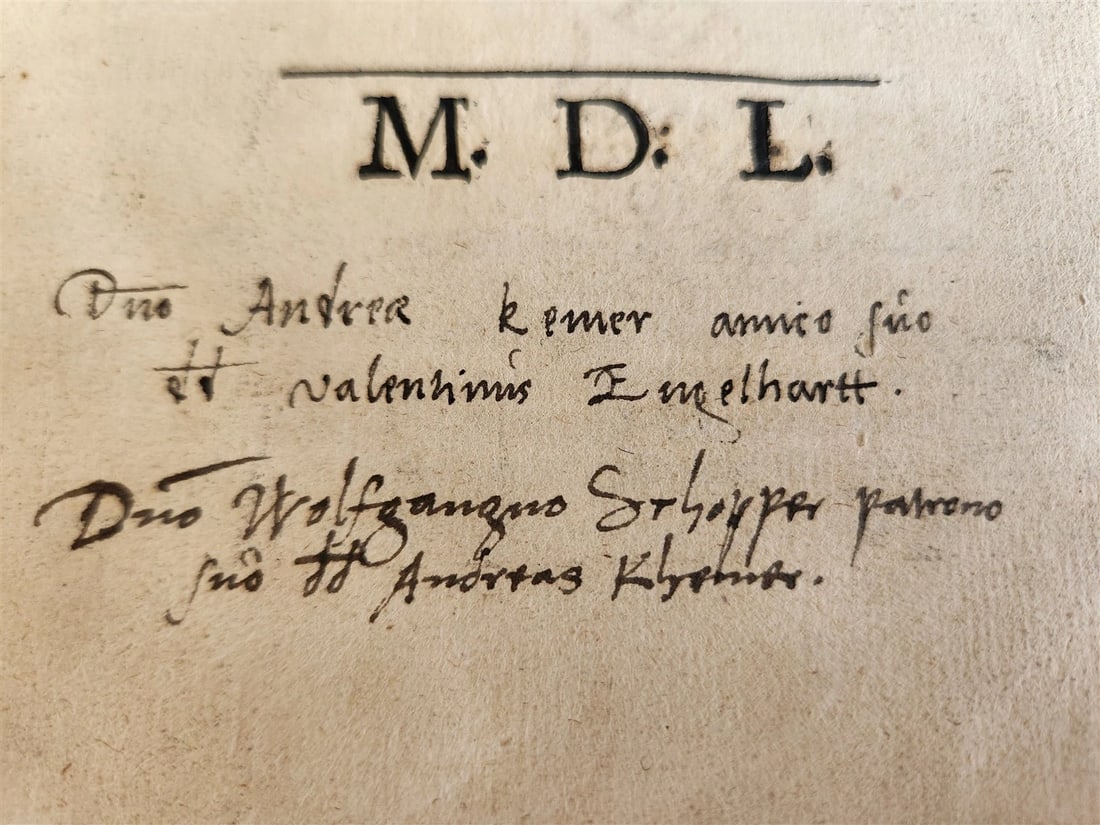 M. D: L.
Dn̄o Andreæ kemer amico sůo
dd Valentinus Engelhartt.
Dn̄o Wolfgangno Schopper patrono
sůo dd Andreas Khemer.